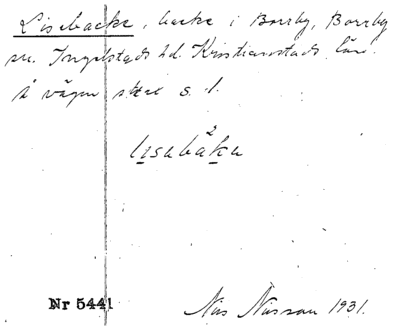 Lisebacke, backe i Borrby, Borrby
sn. Ingelstads hd. Kristianstads län.
å vägen s. l.
lisabáka
2
Nr 5441
Nils Nilsson 1931.